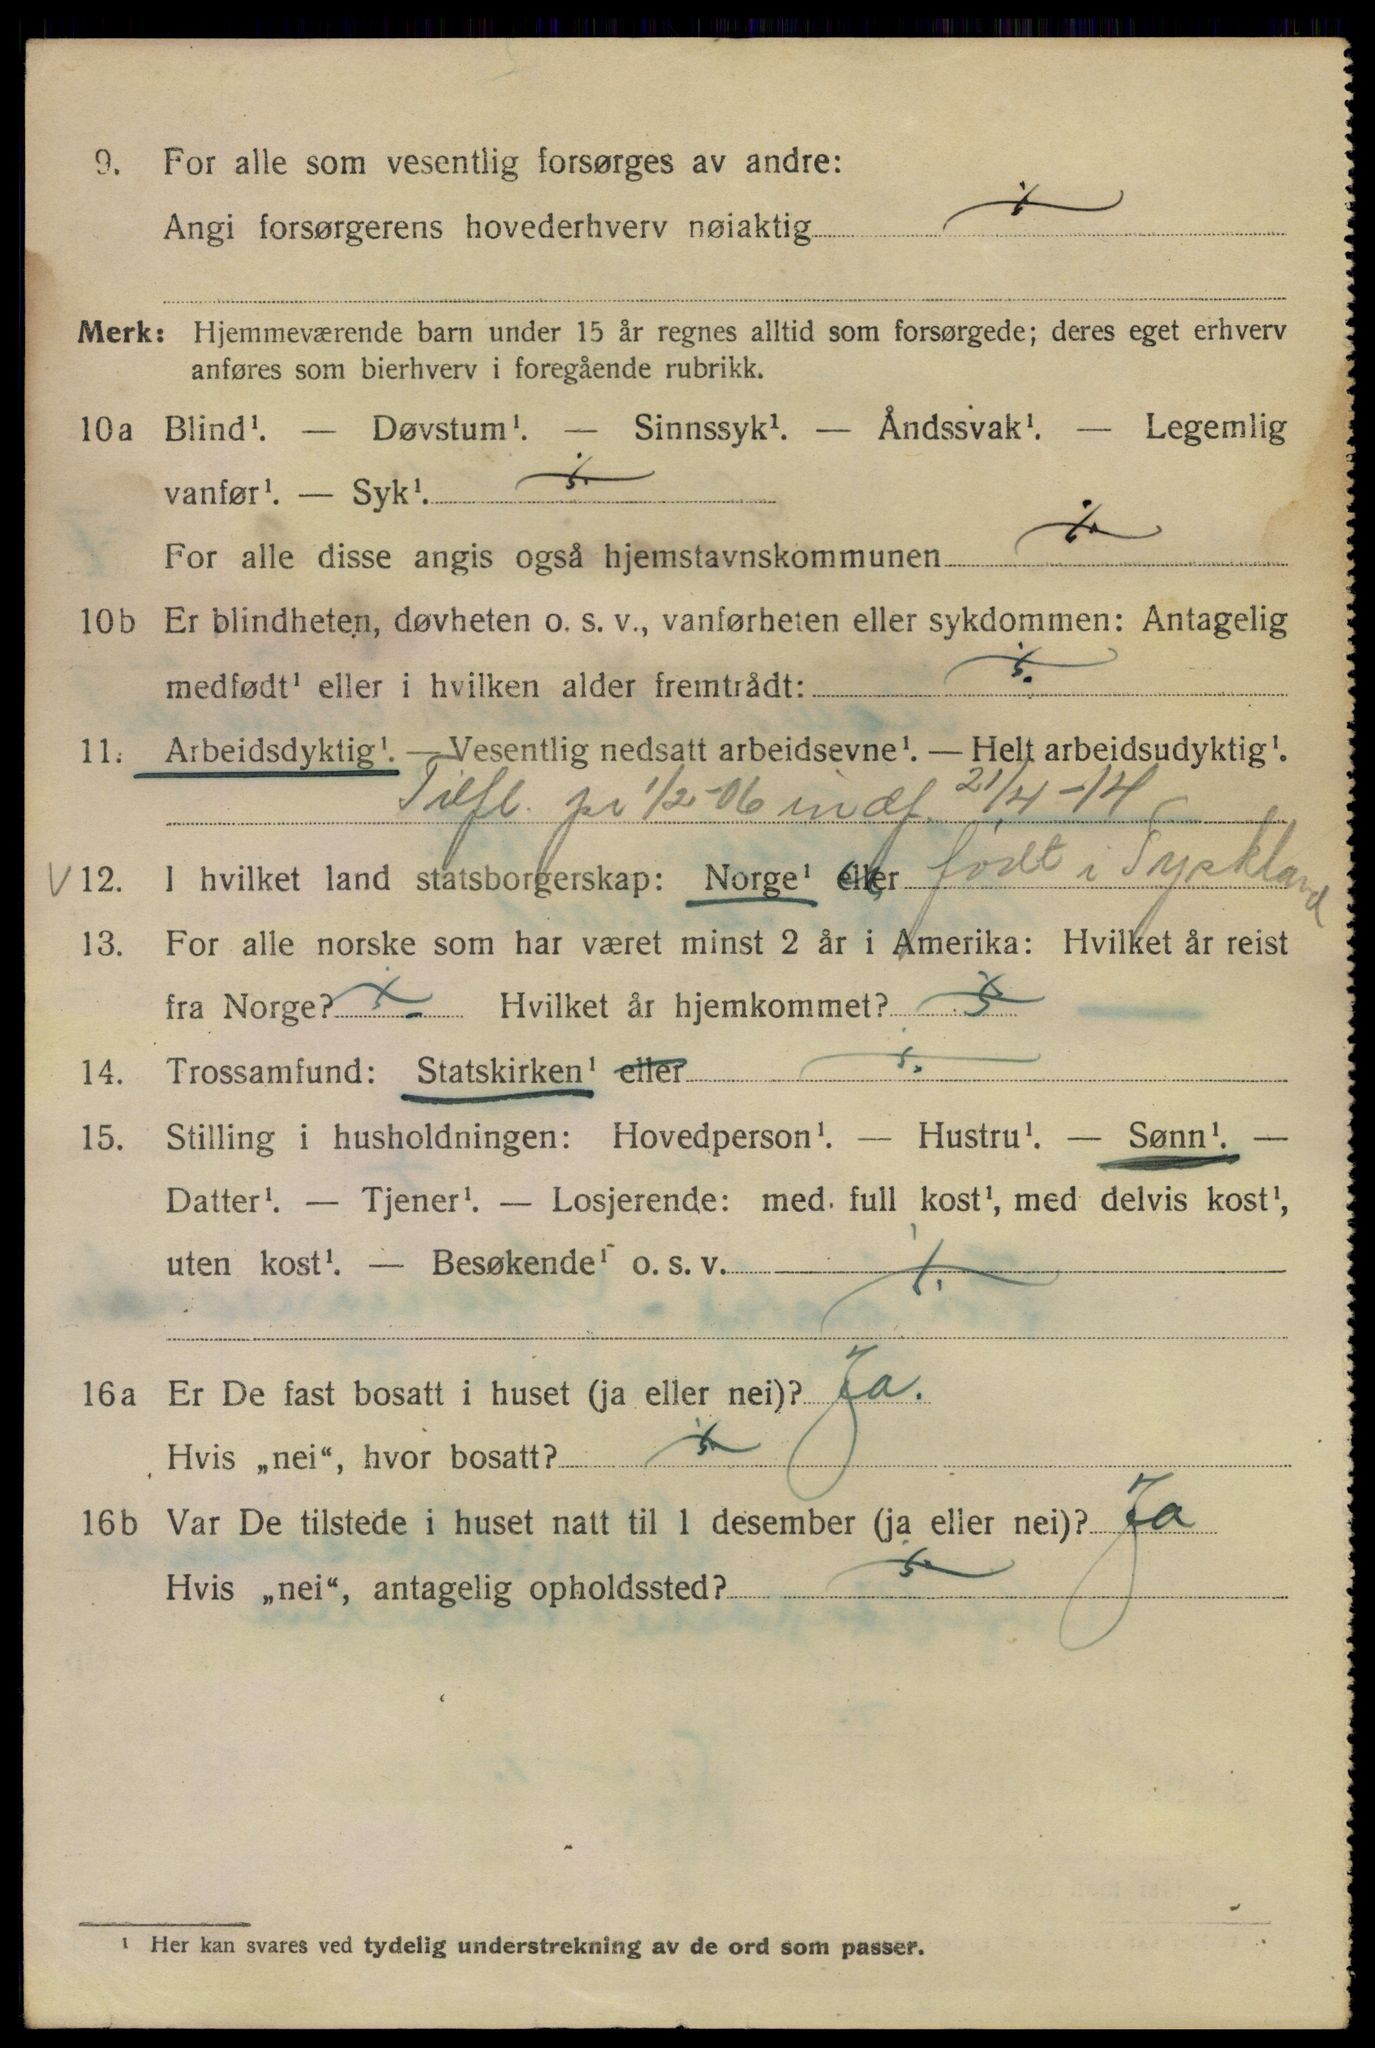 9. For alle som vesentlig forsørges av andre:
Angi forsørgerens hovederhverv nøiaktig ⁒
Merk: Hjemmeværende barn under 15 år regnes alltid som forsørgede; deres eget erhverv
anføres som bierhverv i foregående rubrikk.
10a Blind¹. — Døvstum¹. — Sinnssyk¹. — Åndssvak¹. — Legemlig
vanfør¹. — Syk¹. ⁒
For alle disse angis også hjemstavnskommunen ⁒
10b Er blindheten, døvheten o. s. v., vanførheten eller sykdommen: Antagelig
medfødt¹ eller i hvilken alder fremtrådt: ⁒
11. Arbeidsdyktig¹. — Vesentlig nedsatt arbeidsevne¹. — Helt arbeidsudyktig¹.
Tilfl. pr 1/2-06 indf. 21/4-14
V 12. I hvilket land statsborgerskap: Norge¹ eller født i Tyskland
13. For alle norske som har været minst 2 år i Amerika: Hvilket år reist
fra Norge? ⁒ Hvilket år hjemkommet? ⁒
14. Trossamfund: Statskirken¹ eller ⁒
15. Stilling i husholdningen: Hovedperson¹. — Hustru¹. — Sønn¹. —
Datter¹. — Tjener¹. — Losjerende: med full kost¹, med delvis kost¹,
uten kost¹. — Besøkende¹ o. s. v. ⁒
16a Er De fast bosatt i huset (ja eller nei)? Ja.
Hvis „nei“, hvor bosatt? ⁒
16b Var De tilstede i huset natt til 1 desember (ja eller nei)? Ja
Hvis „nei“, antagelig opholdssted? ⁒
¹ Her kan svares ved tydelig understrekning av de ord som passer.